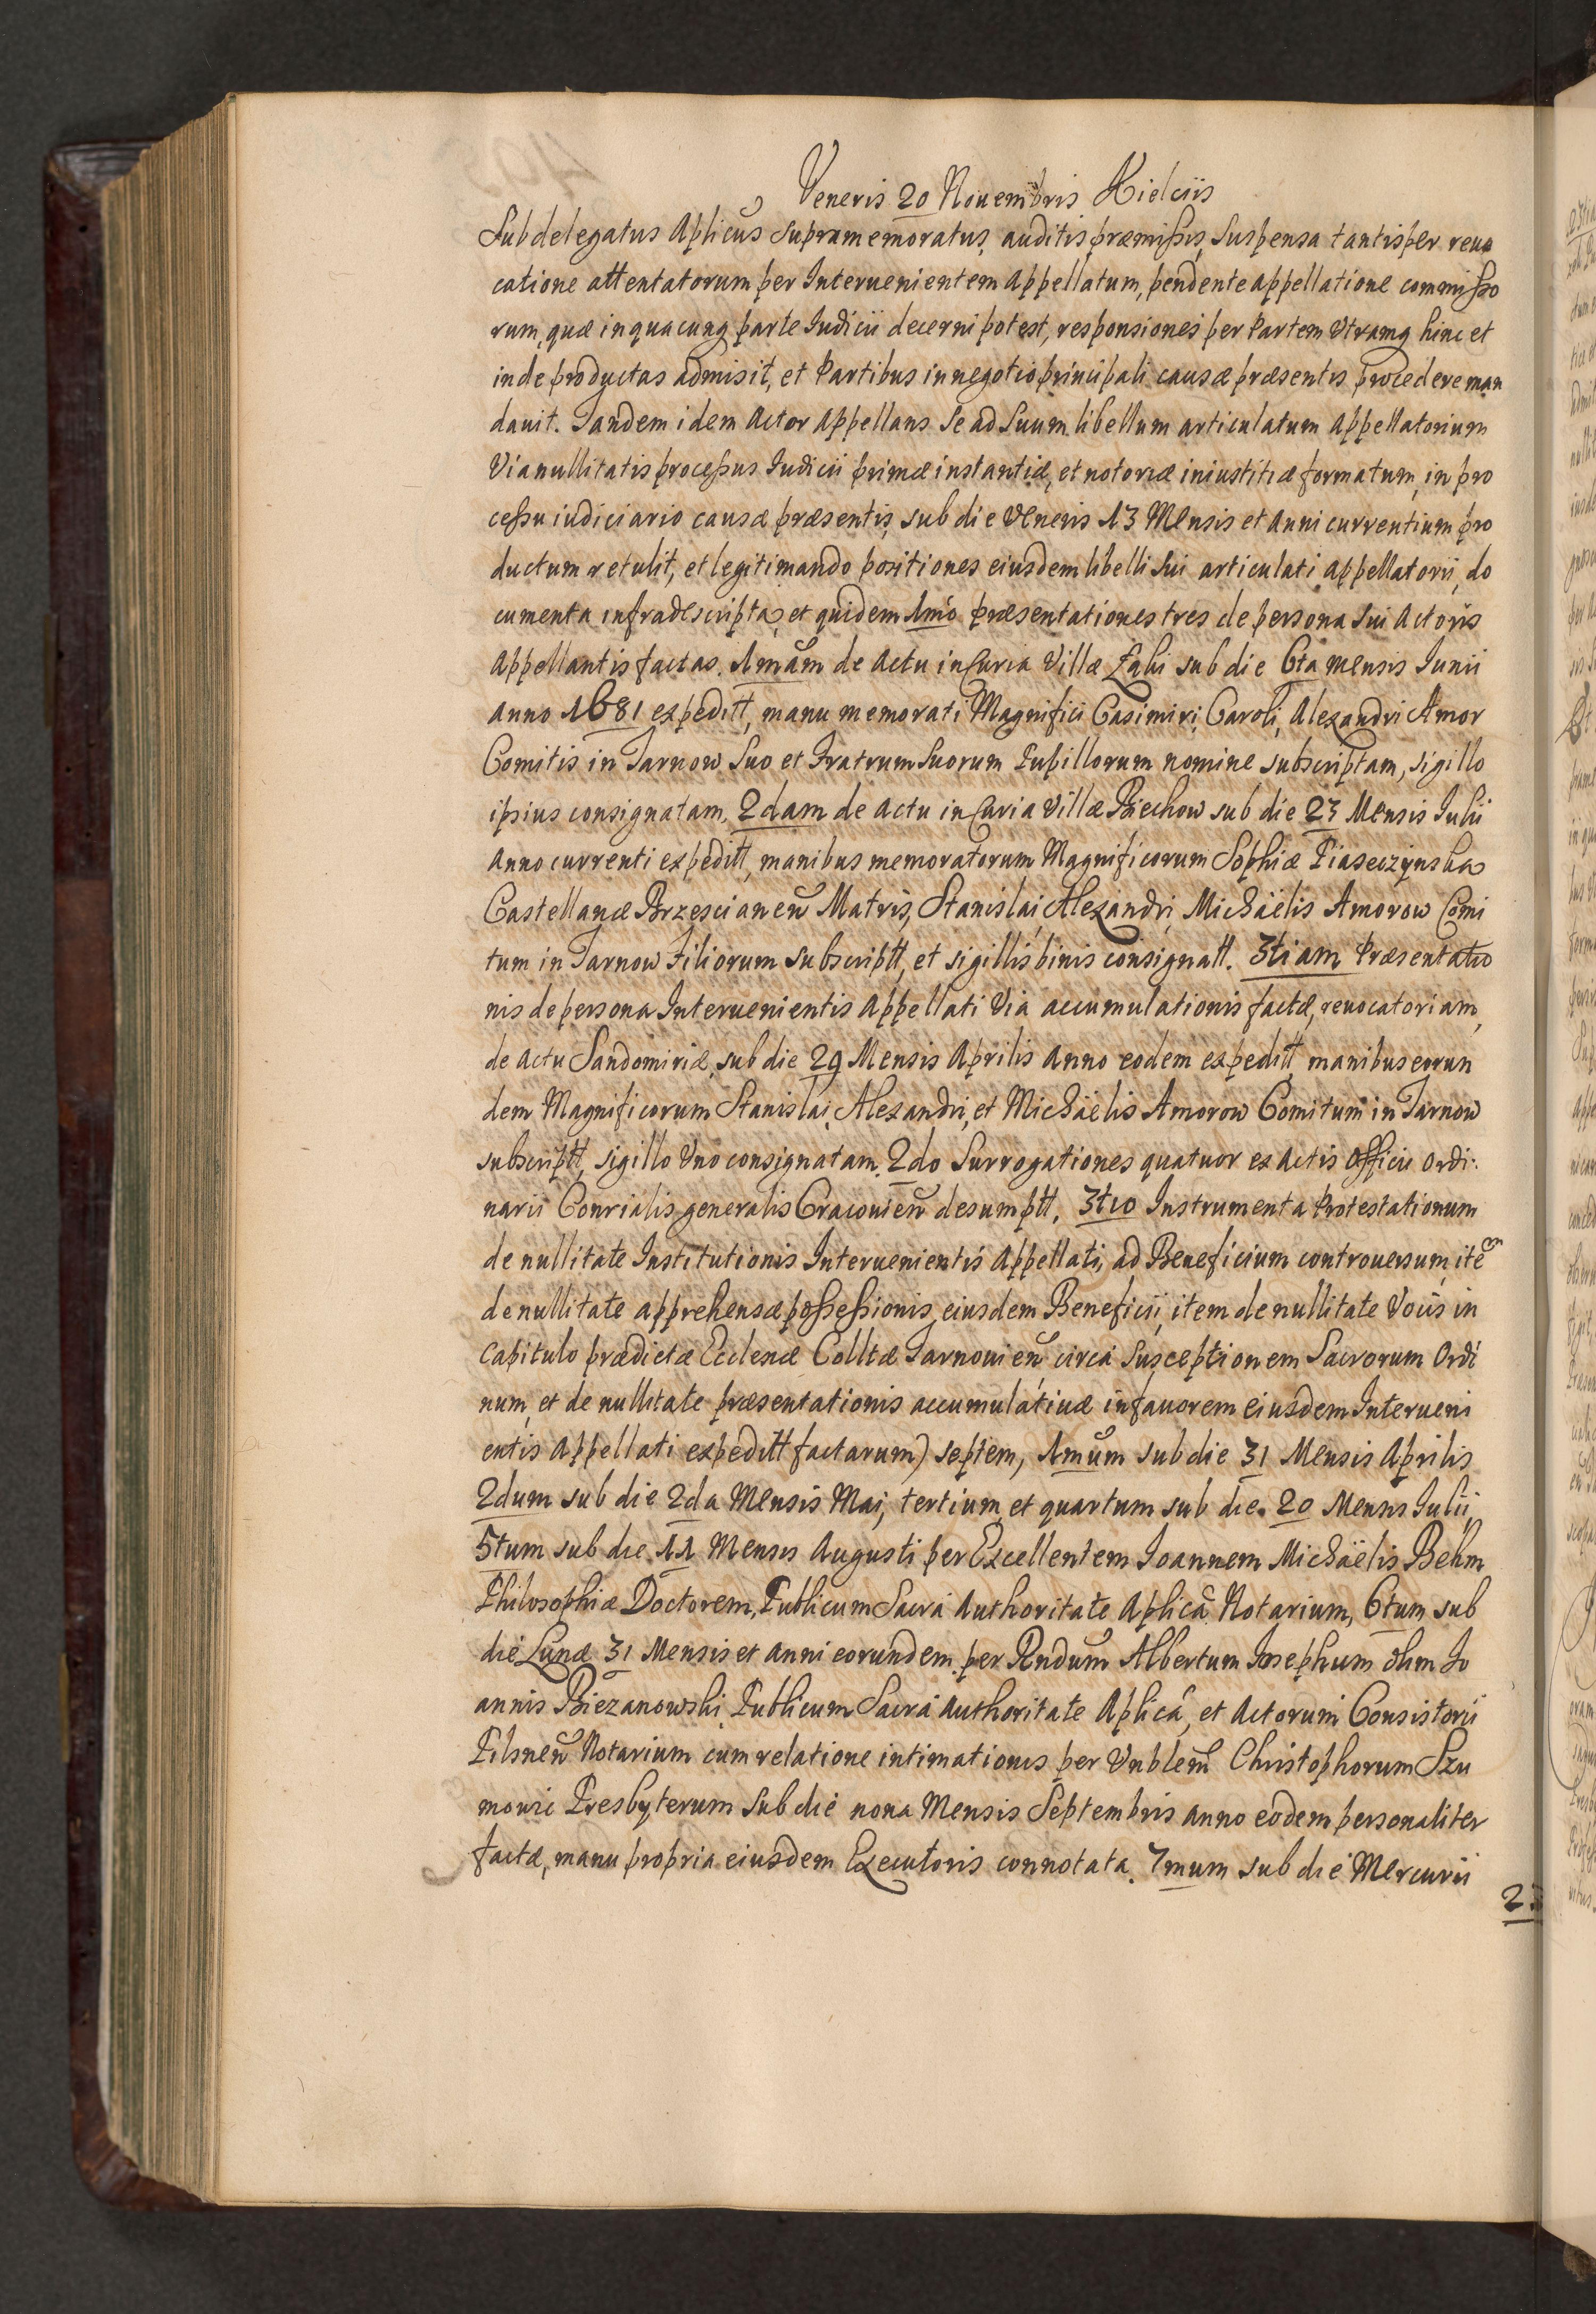 Veneris 20 Nouembris Kielciis
Subdelegatus Aplicus supramemoratus, auditis præmissis, suspensa tantisper reuo
catione attentatorum per Interuenientem Appellatum, pendente appellatione commisso
rum, quæ in quacunq parte Iudicii decerni potest, responsiones per Partem Vtramq hinc et
inde productas admisit, et Partibus in negotio principali causæ præsentis procedere man
dauit. Tandem idem Actor Appellans se ad suum libellum articulatum appellatorium
Via nullitatis processus Iudicii primæ instantiæ, et notoriæ iniustitiæ formatum, in pro
cessu iudiciario causæ præsentis, sub die Veneris 13 Mensis et Anni currentium pro
ductum retulit, et legitimando positiones eiusdem libelli sui articulati appellatorii, do
cumenta infradescripta, et quidem 1mó præsentationes tres de persona sui Actoris
Appellantis factas. 1mam de Actu in Curia Villæ Łąki sub die 6ta mensis Iunii
Anno 1681 expeditt, manu memorati Magnifici Casimiri, Caroli, Alexandri Amor
Comitis in Tarnow suo et Fratrum suorum Pupillorum nomine subscriptam, sigillo
ipsius consignatam, 2dam de actu in Curia Villæ Biechow sub die 23 Mensis Iulii
Anno currenti expeditt, manibus memoratorum Magnificorum Sophiæ Piaseczynska
Castellanæ Brzescianen Matris, Stanislai, Alexandri, Michäelis Amorow Comi
tum in Tarnow Filiorum subscriptt, et sigillis binis consignatt. 3tiam Præsentatio
nis de persona Interuenientis Appellati Via accumulationis factæ, reuocatoriam,
de actu Sandomiriæ, sub die 29 Mensis Aprilis Anno eodem expeditt manibus eorun
dem Magnificorum Stanislai, Alexandri, et Michäelis Amorow Comitum in Tarnow
subscriptt, sigillo Vno consignatam. 2do Surrogationes quatuor ex Actis Officii Ordi:
narii Consrialis generalis Cracouien desumptt, 3tio Instrumenta Protestationum
de nullitate Institutionis Interuenientis Appellati, ad Beneficium controuersum, item
de nullitate apprehensæ possessionis eiusdem Beneficii, item de nullitate Vocis in
Capitulo prædictæ Ecclesiæ Colltæ Tarnouien, circa susceptionem Sacrorum Ordi
num, et de nullitate præsentationis accumulatiuæ in fauorem eiusdem Interueni
entis Appellati expeditt factarum) septem, 1mum sub die 31 Mensis Aprilis
2dum sub die 2da Mensis Mai, tertium et quartum sub die. 20 Mensis Iulii,
5tum sub die 11 Mensis Augusti per Excellentem Ioannem Michäelis Behm
Philosophiæ Doctorem, Publicum Sacrá Authoritate Aplicâ Notarium, 6tum sub
die Lunæ 31 Mensis et anni eorundem per Rndum Albertum Iosephum olim Io
annis Biezanowski Publicum Sacrá Authoritate Aplicá, et Actorum Consistorii
Pilsnen Notarium cum relatione intimationis per Vnblem Christophorum Szu
mowic Presbyterum sub die nona Mensis Septembris anno eodem personaliter
factæ, manu propria eiusdem Executoris connotata. 7mum sub die Mercurii